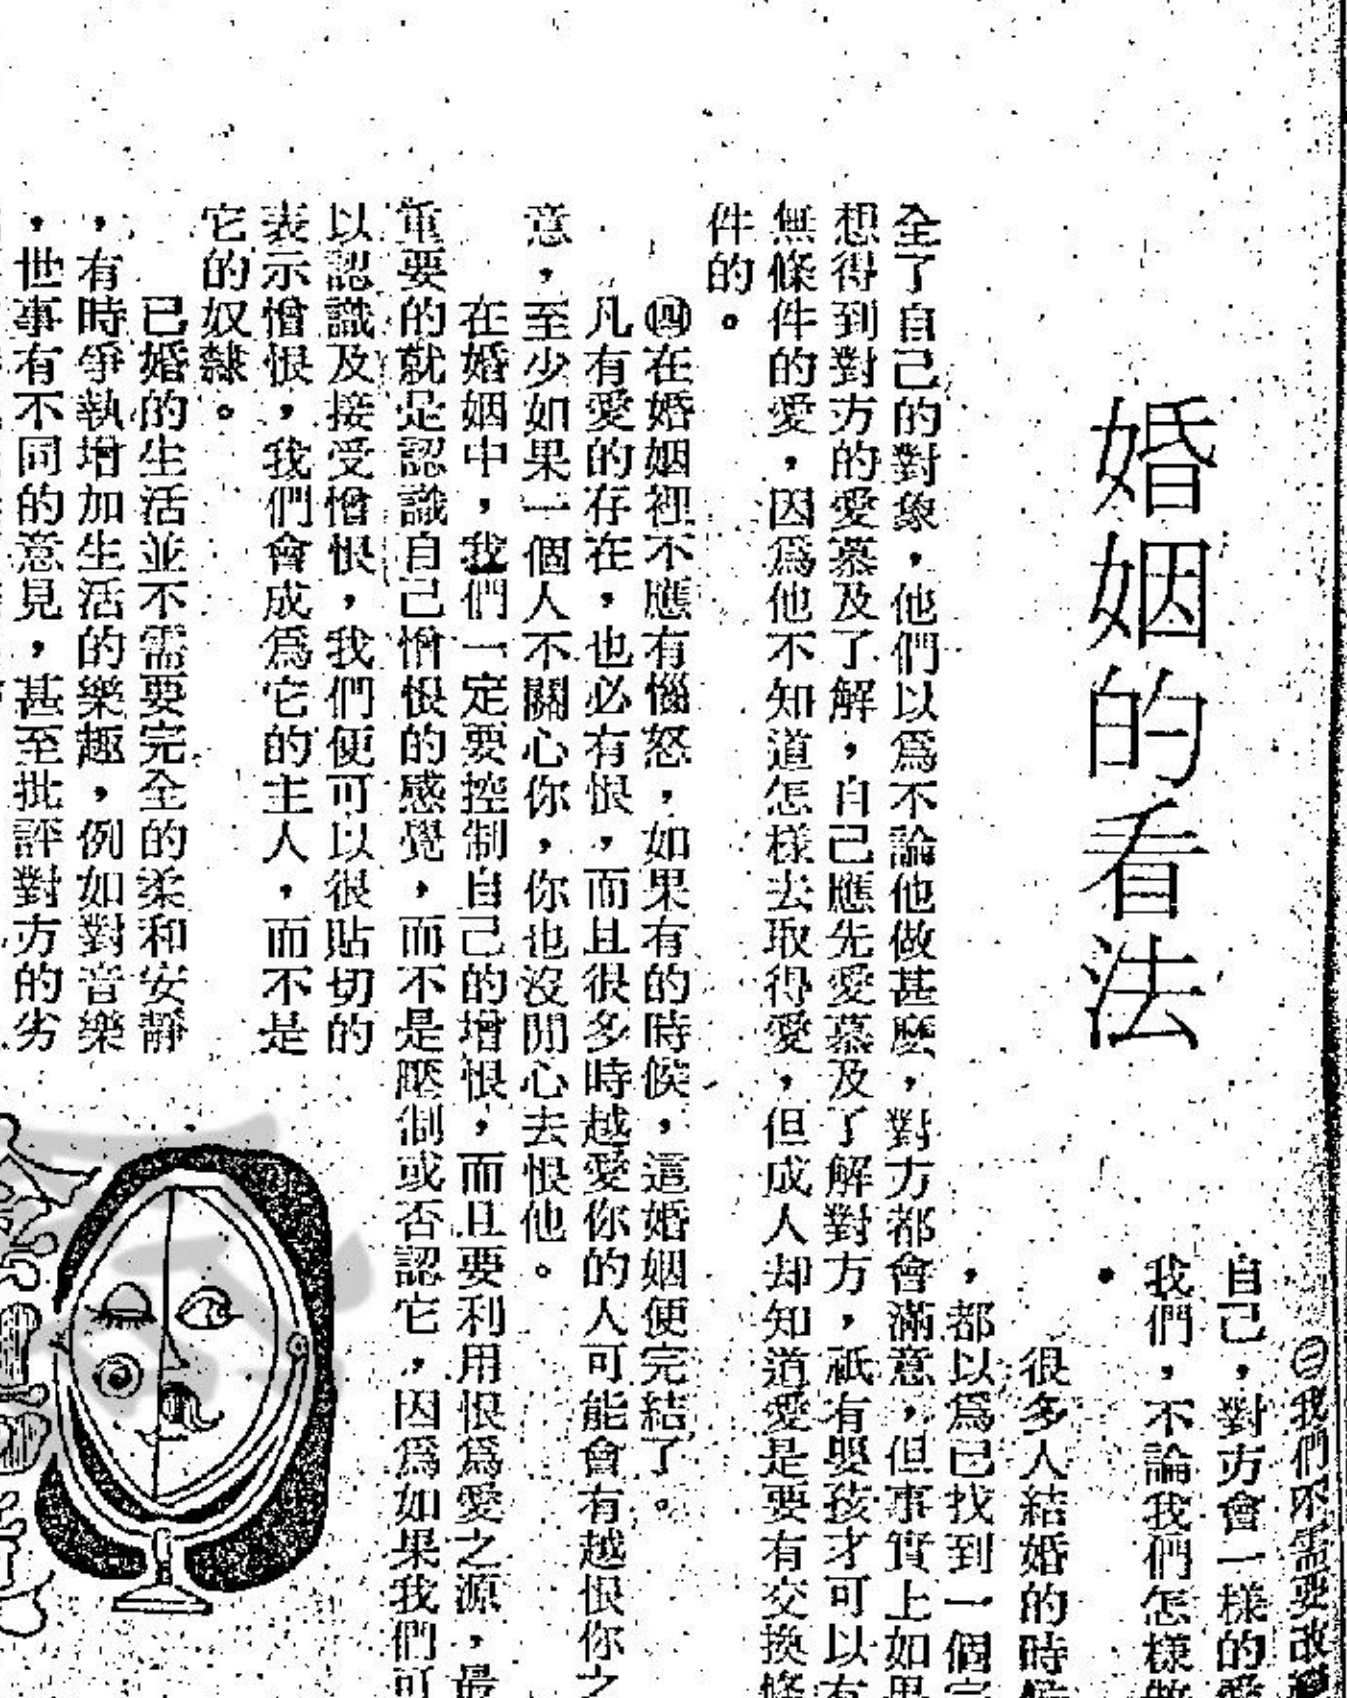 婚姻的看法
㊂我們不需要改變
自己，對方會一樣的愛
我們，不論我們怎樣做
。
很多人結婚的時候
，都以爲已找到一個完
全了自己的對象，他們以爲不論他做甚麽，對方都會滿意，但事實上如果
想得到對方的愛慕及了解，自己應先愛慕及了解對方，祇有嬰孩才可以有
無條件的愛，因爲他不知道怎樣去取得愛，但成人却知道愛是要有交換條
件的。
㊃在婚姻裡不應有惱怒，如果有的時候，這婚姻便完結了。
凡有愛的存在，也必有恨，而且很多時越愛你的人可能會有越恨你之
意，至少如果一個人不關心你，你也沒閒心去恨他。
在婚姻中，我們一定要控制自己的增恨，而且要利用恨爲愛之源，最
重要的就是認識自己憎恨的感覺，而不是壓制或否認它，因爲如果我們可
以認識及接受憎恨，我們便可以很貼切的
表示憎恨，我們會成爲它的主人，而不是
它的奴隸。
已婚的生活並不需要完全的柔和安靜
，有時爭執增加生活的樂趣，例如對音樂
，世事有不同的意見，甚至批評對方的劣